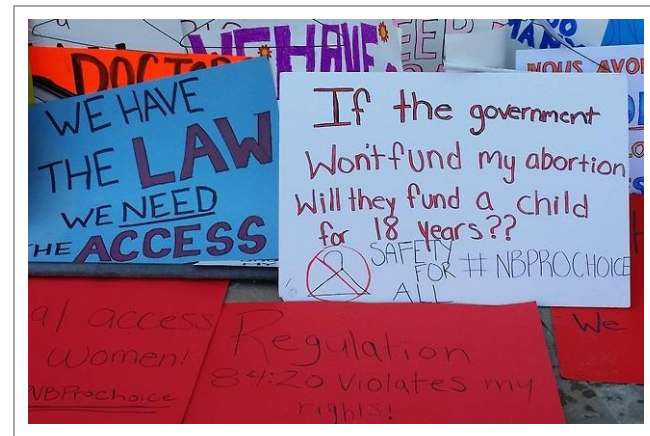 DOCTOR
WE HAVE
NOUS AVO
WE HAVE
THE LAW
WE NEED
THE ACCESS
If the government
Won't fund my abortion
Will they fund a child
for 18 years??
SAFETY
FOR # NBPROCHOICE
ALL
access
women!
NBProchoice
Regulation
84:20 violates my
rights!
We